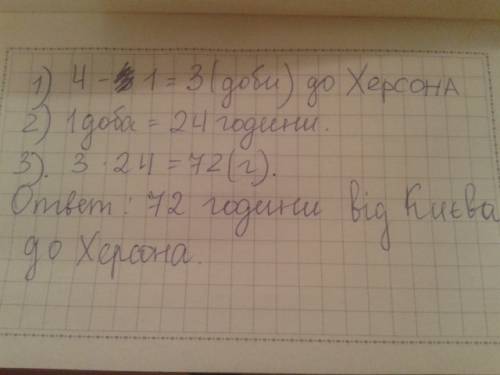 1) 4 - 1 = 3 (доби) до Херсона
2) 1 доба = 24 години.
3). 3 · 24 = 72 (г).
Ответ: 72 години від Києва
до Херсона.